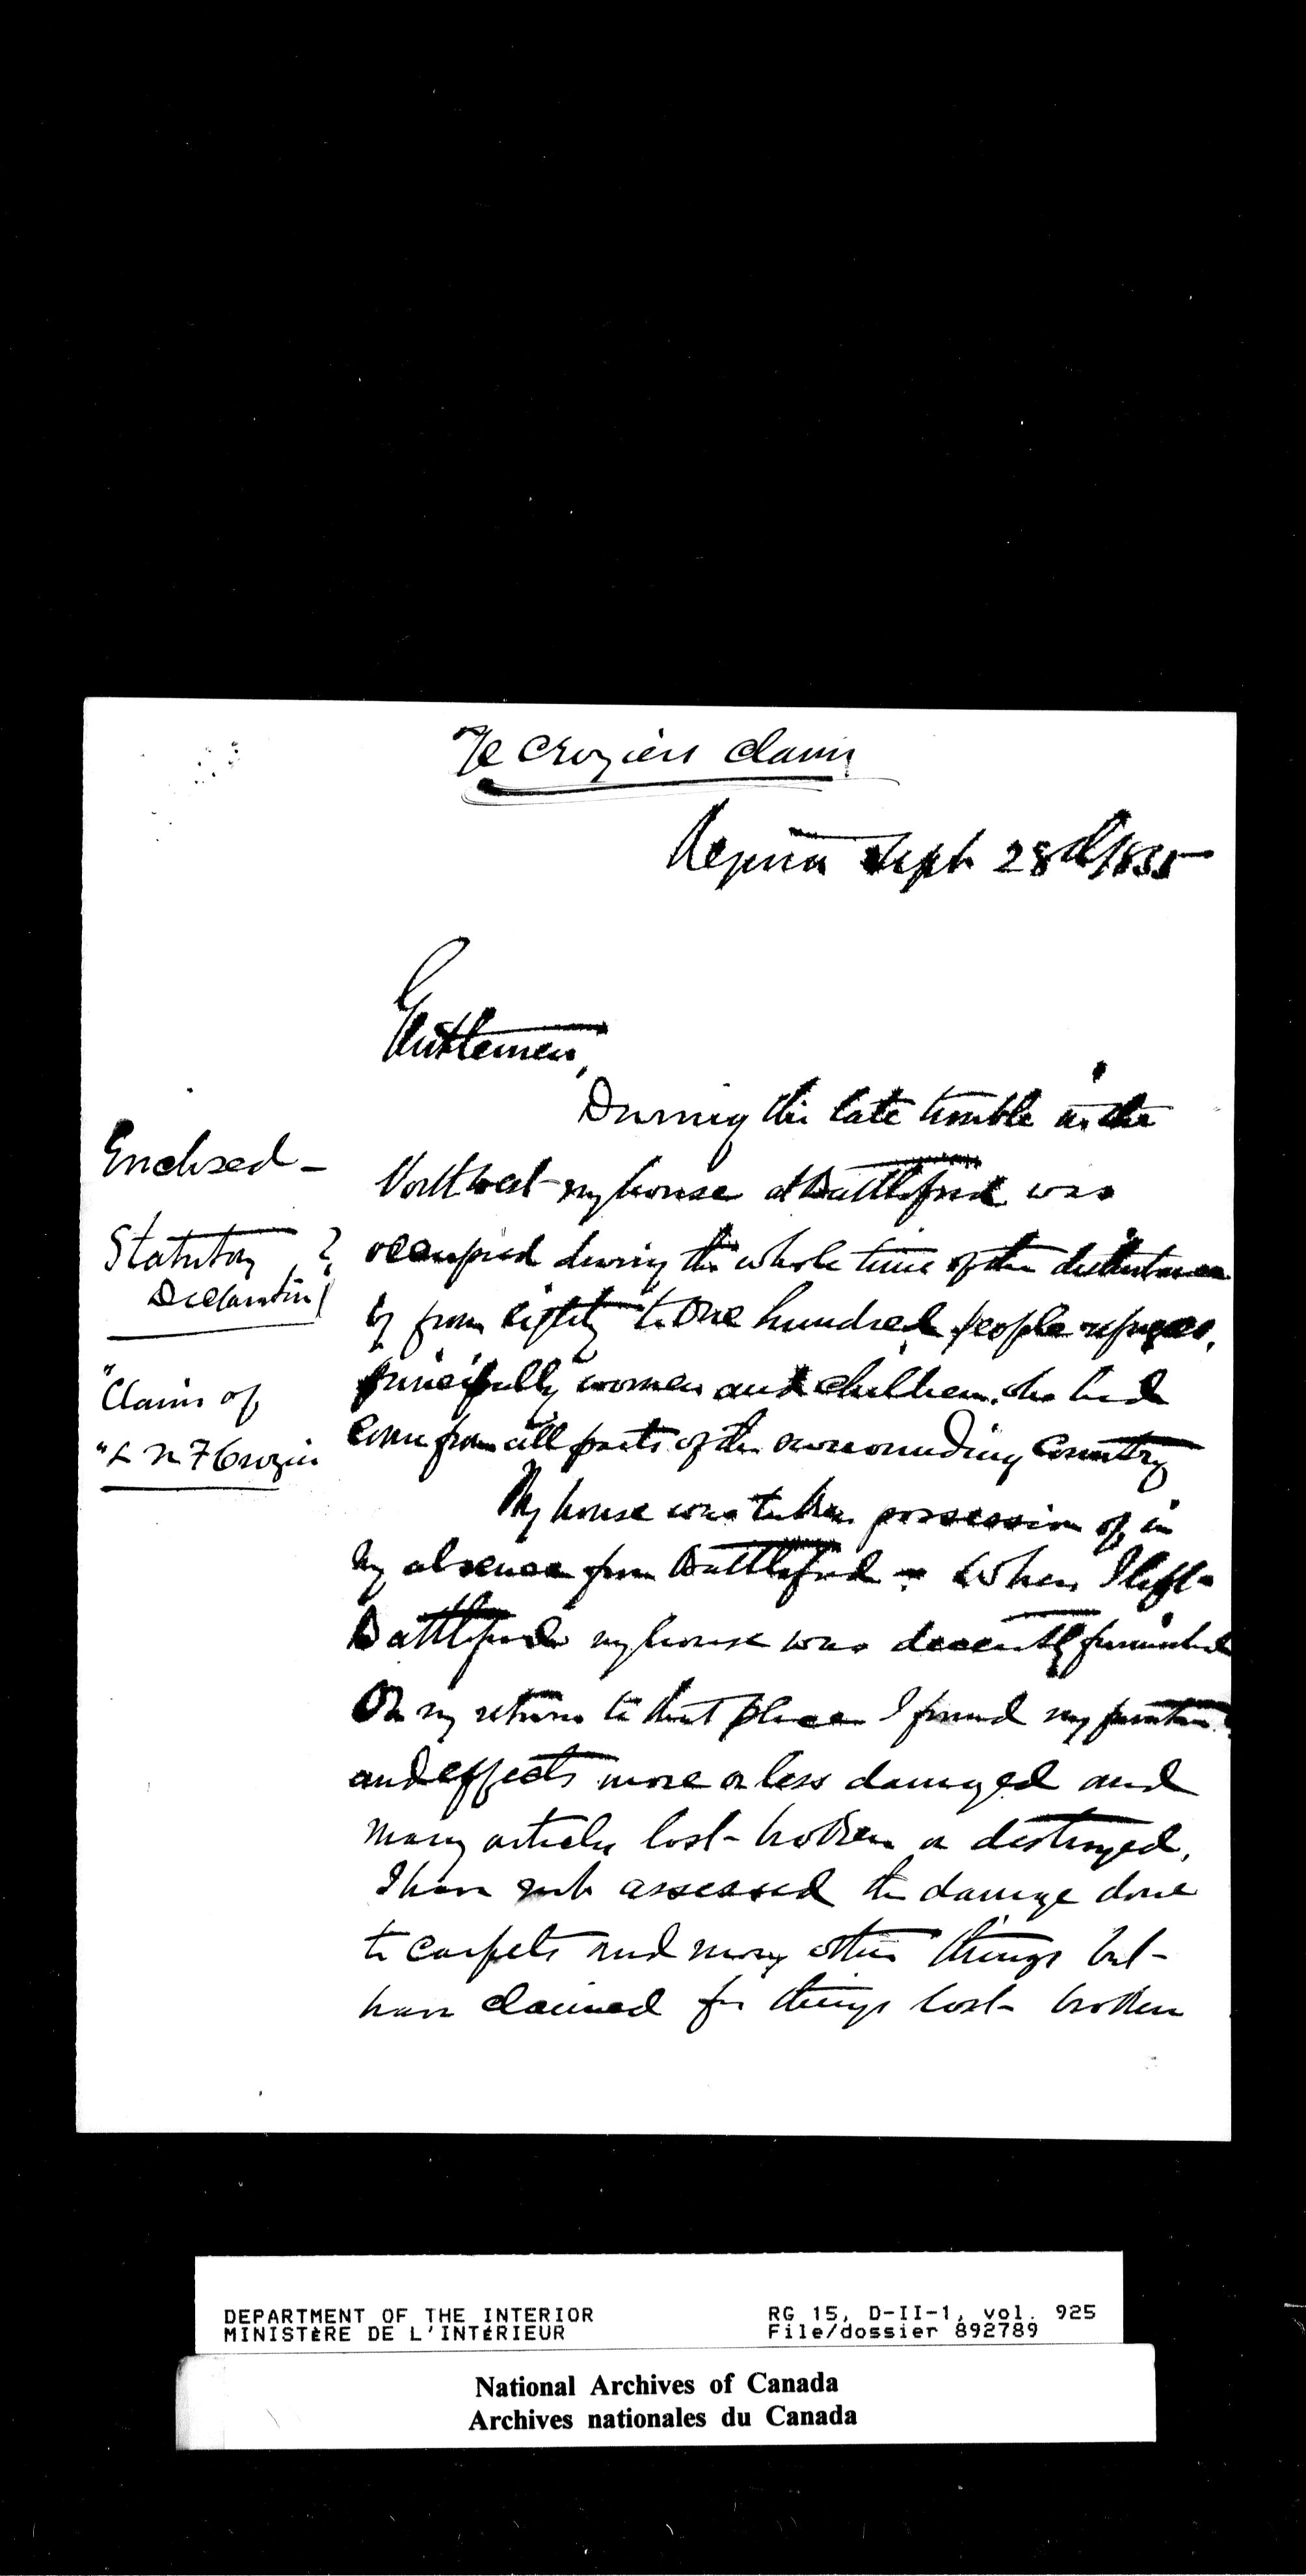 Re Croziers claim
Regina Sept 28d/1885
Gentlemen,
During the late trouble in the
Northwest my house at Battleford was
occupied during the whole time of the disturbance
by from eighty to one hundred people refugees,
principally women and children who had
come from all parts of the surrounding country
My house was taken possession of in
my absence from Battleford - When I left
Battleford my house was decently furnished
On my return to that place I found my furniture
and effects more or less damaged and
many articles lost - broken or destroyed,
I have not assessed the damage done
to carpets and many other things but
have claimed for things lost - broken
Enclosed -
Statutory
Declaration
"Claim of
"L N F Crozier
DEPARTMENT OF THE INTERIOR
MINISTÈRE DE L'INTÉRIEUR
RG 15, D-II-1, vol. 925
File/dossier 892789
National Archives of Canada
Archives nationales du Canada